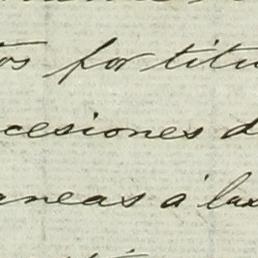 os por titu
cesiones d
aneas á las